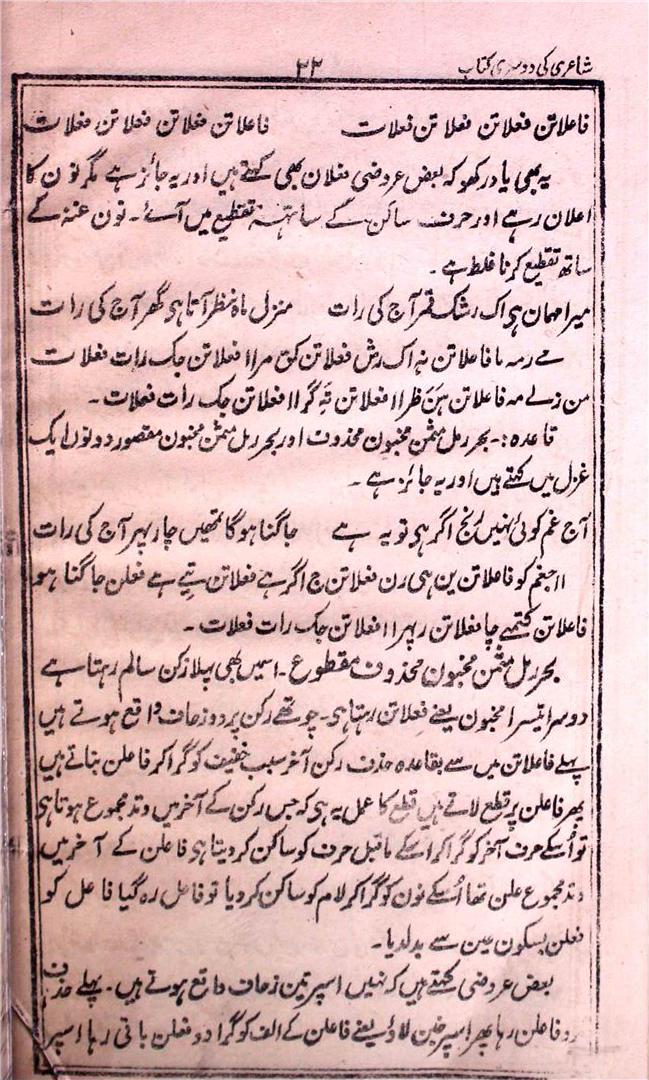 شاعری کی دوسری کتاب ۲۲
فاعلاتن فعلاتن فعلاتن فعلات فاعلاتن فعلاتن فعلاتن فعلات
یہ بھی یاد رکھو کہ بعض عروضی فعلان بھی کہتے ہیں اور یہ جائز ہے مگر نون کا
اعلان رہے اور حرف ساکن کے ساتھ تقطیع میں آئے۔ نون غنہ کے
ساتھ تقطیع کرنا غلط ہے۔
میرا مہمان ہی اک رشک قمر آج کی رات منزل ماہ نظر آتا ہی گھر آج کی رات
مے رمہ ما فاعلاتن نہ اک رش فعلاتن کق مراا فعلاتن جک رات فعلات
من زلے مہ فاعلاتن ہن ظراا فعلاتن تہ گراا فعلاتن جک رات فعلات۔
قاعدہ :- بحر رمل مثمن مخبون محذوف اور بحر رمل مثمن مخبون مقصور دونوں ایک
غزل میں کہتے ہیں اور یہ جائز ہے۔
آج غم کوئی نہیں رنج اگر ہی تو یہ ہے جاگنا ہوگا تمھیں چار پہر آج کی رات
ااجغم کو فاعلاتن ین ہی رن فعلاتن ج اگر ہے فعلاتن تیے ہے فعلن جاگنا ہو
فاعلاتن گتمہے چا فعلاتن ر پہراا فعلاتن جک رات فعلات۔
بحر رمل مثمن مخبون محذوف مقطوع۔ اسمیں بھی پہلا رکن سالم رہتا ہے
دوسرا تیسرا مخبون یعنے فعلاتن رہتا ہی۔ چوتھے رکن پر دو زحاف واقع ہوتے ہیں
پہلے فاعلاتن میں سے بقاعدہ حذف رکن آخر سبب خفیف کو گرا کر فاعلن بناتے ہیں
پھر فاعلن پر قطع لاتے ہیں قطع کا عمل یہ ہی کہ جس رکن کے آخر میں وتد مجموع ہوتا ہی
تو اُسکے حرف آخر کو گرا کر اسکے ماقبل حرف کو ساکن کر دیتا ہی فاعلن کے آخر میں
وتد مجموع علن تھا اُسکے نون کو گرا کر لام کو ساکن کر دیا تو فاعل رہ گیا فاعل کو
فعلن بسکون عین سے بدلدیا۔
بعض عروضی کہتے ہیں کہ نہیں اسپر تین زحاف واقع ہوتے ہیں۔ پہلے حذف
کرو فاعلن رہا پھر اسپر خبن لاؤ یعنے فاعلن کے الف کو گرا دو فعلن باقی رہا اسپر